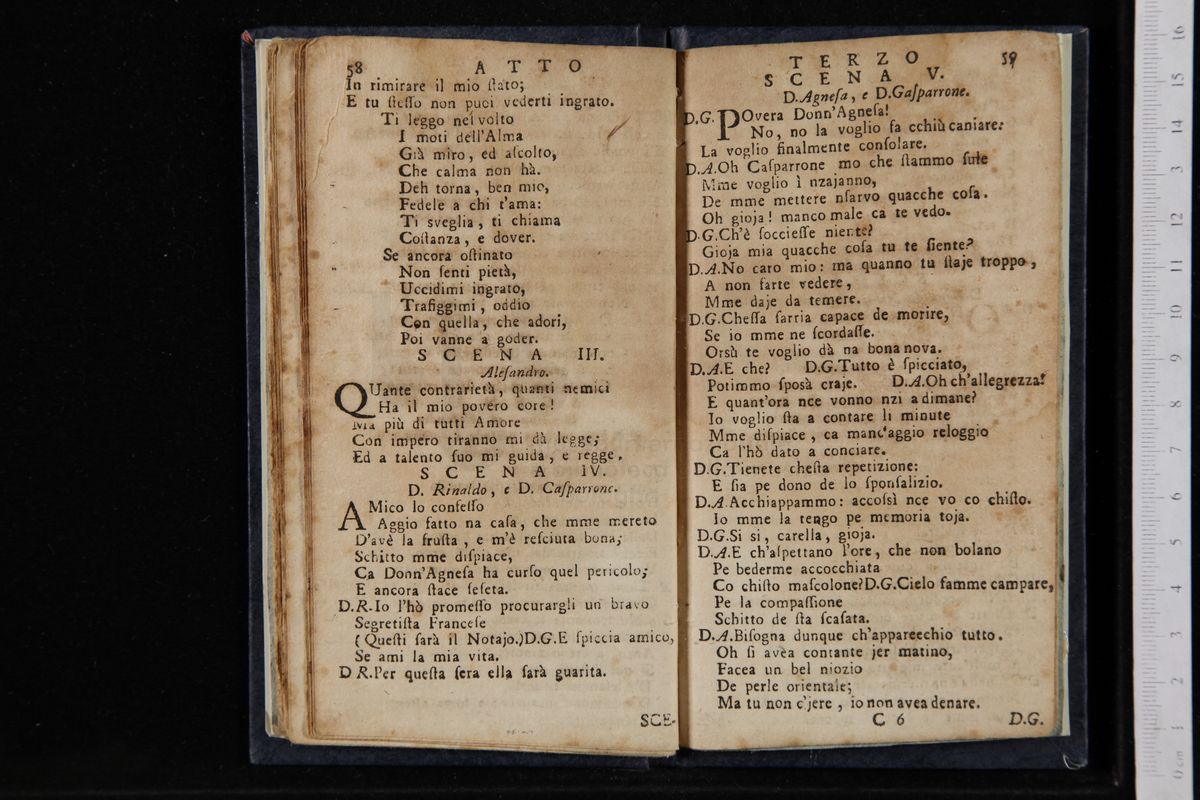 58 ATTO
In rimirare il mio ſtato;
E tu ſteſſo non puoi vederti ingrato.
Ti leggo nel volto
I moti dell'Alma
Già miro, ed aſcolto,
Che calma non hà.
Deh torna, ben mio,
Fedele a chi t'ama:
Ti sveglia, ti chiama
Coſtanza, e dover.
Se ancora oſtinato
Non ſenti pietà,
Uccidimi ingrato,
Trafiggimi, oddio
Con quella, che adori,
Poi vanne a goder.
SCENA III.
Aleſandro.
QUante contrarietà, quanti nemici
Ha il mio povero core!
Ma più di tutti Amore
Con impero tiranno mi dà legge;
Ed a talento ſuo mi guida, e regge.
SCENA IV.
D. Rinaldo, e D. Caſparrone.
AMico lo confeſſo
Aggio fatto na caſa, che mme mereto
D'avè la fruſta, e m'è reſciuta bona;
Schitto mme diſpiace,
Ca Donn'Agneſa ha curſo quel pericolo;
E ancora ſtace ſeſeta.
D.R.Io l'hò promeſſo procurargli un bravo
Segretiſta Franceſe
(Queſti ſarà il Notajo.)D.G.E ſpiccia amico,
Se ami la mia vita.
D R.Per queſta ſera ella ſarà guarita.
SCE-
TERZO 59
SCENA V.
D.Agneſa, e D.Gaſparrone.
D.G. POvera Donn'Agneſa!
No, no la voglio fa cchiù caniare:
La voglio finalmente conſolare.
D.A.Oh Caſparrone mo che ſtammo ſule
Mme voglio ì nzajanno,
De mme mettere nſarvo quacche coſa.
Oh gioja! manco male ca te vedo.
D.G.Ch'è ſoccieſſe niente?
Gioja mia quacche coſa tu te ſiente?
D.A.No caro mio: ma quanno tu ſtaje troppo,
A non farte vedere,
Mme daje da temere.
D.G.Cheſſa ſarria capace de morire,
Se io mme ne ſcordaſſe.
Orsù te voglio dà na bona nova.
D.A.E che? D.G.Tutto è ſpicciato,
Potimmo ſposà craje. D.A.Oh ch'allegrezza!
E quant'ora nce vonno nzi a dimane?
Io voglio ſta a contare li minute
Mme diſpiace, ca manc'aggio reloggio
Ca l'hò dato a conciare.
D.G.Tienete cheſta repetizione:
E ſia pe dono de lo ſponſalizio.
D.A.Acchiappammo: accoſsì nce vo co chiſto.
Io mme la tengo pe memoria toja.
D.G.Si si, carella, gioja.
D.A.E ch'aſpettano l'ore, che non bolano
Pe bederme accocchiata
Co chiſto maſcolone?D.G.Cielo famme campare,
Pe la compaſſione
Schitto de ſta ſcaſata.
D.A.Biſogna dunque ch'apparecchio tutto.
Oh ſi avèa contante jer matino,
Facea un bel niozio
De perle orientale;
Ma tu non c'jere, io non avea denare.
C 6 D.G.